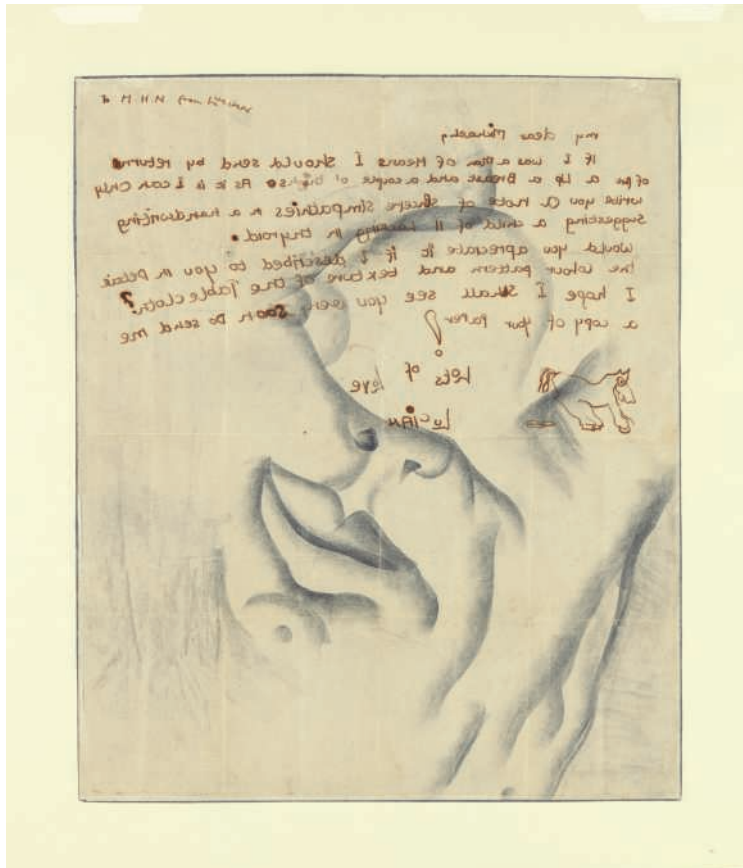 To M.H.N from
my dear
If I was a Man of Means I Should send by return
of a Breast and a couple of As it is I can only
write you a note of sincere simpathies in a handwriting
Suggesting a child of 11 lacking in thyroid.
Would you apreciate it if I described to you in Detail
the colour pattern and texture of the Tablecloth?
I hope I shall see you very soon Do send me
a copy of your Paper!
Lots of love
LUCIAN